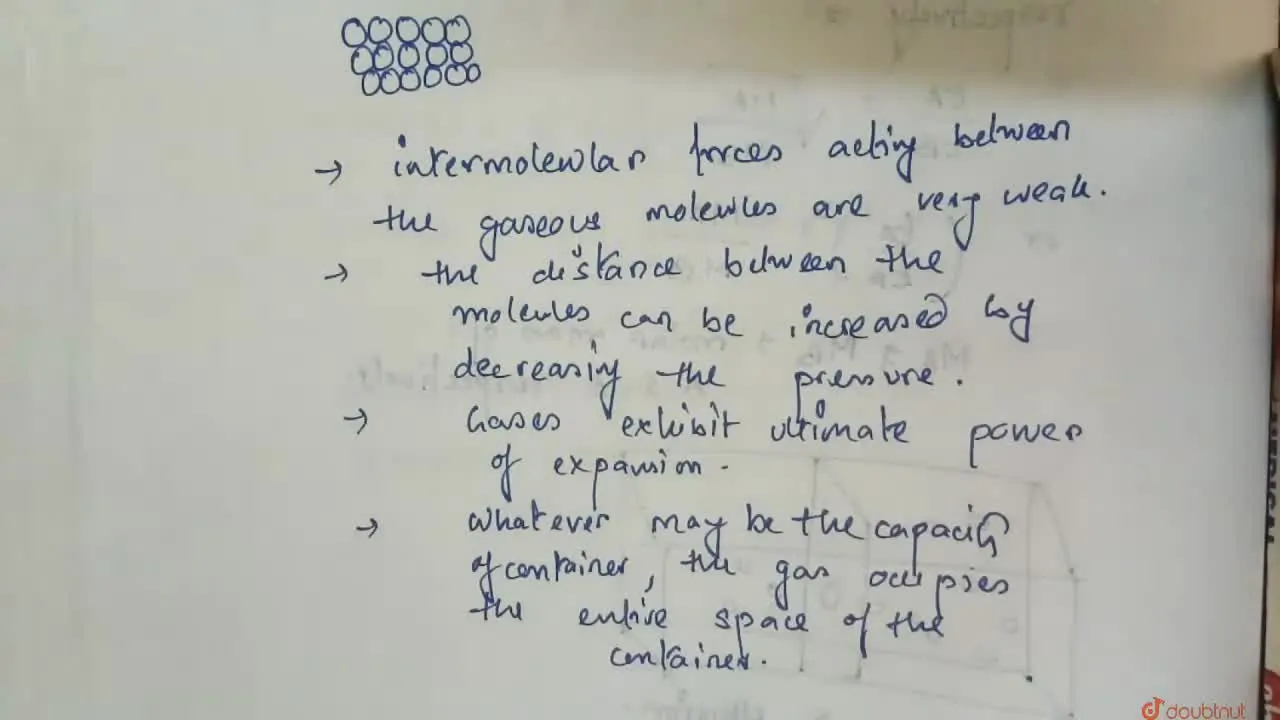 respectively
→ intermolecular forces acting between
the gaseous molecules are very weak.
→ the distance between the
molecules can be increased by
decreasing the pressure.
→ Gases exhibit ultimate power
of expansion.
→ whatever may be the capacity
of container, the gas occupies
the entire space of the
container.
doubtnut